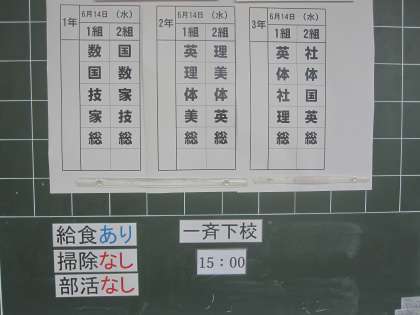 1年 6月14日 (水)
1組 2組
数 国
国 数
技 家
家 技
総 総
2年 6月14日 (水)
1組 2組
英 理
理 美
体 体
美 英
総 総
3年 6月14日 (水)
1組 2組
英 社
体 体
社 国
理 英
総 総
給食あり
掃除なし
部活なし
一斉下校
15:00